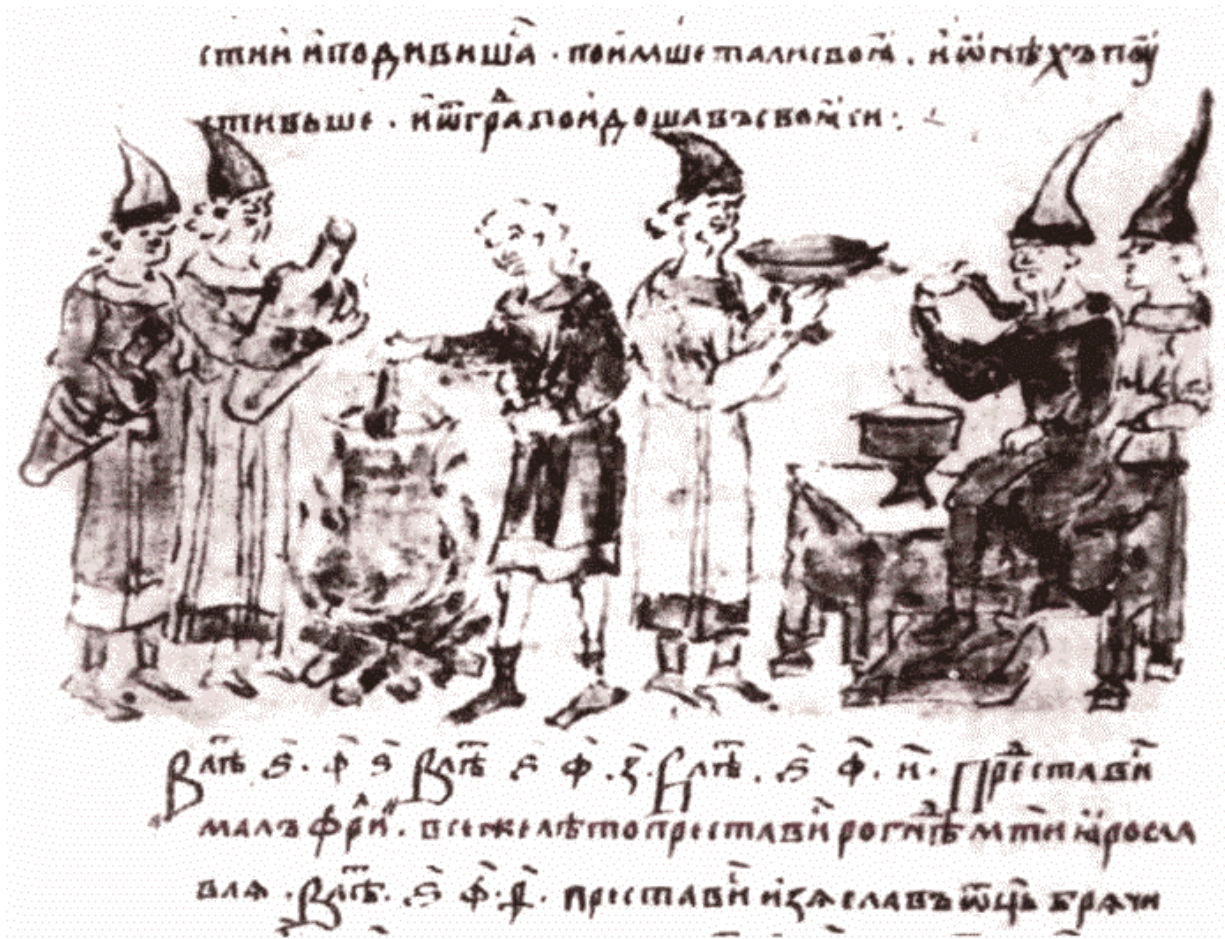 стии и҆подивишаⷭ҇ · пои҆мше талисвоꙗ҆ . и҆ѡ҆нѣхъ поꙋ
стивьше . и҆ѿграⷣпои҆дошавъсвоꙗ҆си :
Влⷮѣ ѕ҃ · ф҃ ѕ҃ Влⷮѣ ѕ҃ ф҃ .з҃. Влⷮѣ . ѕ҃ ф҃ . и҃ · Преⷭ҇тави
малъфриⷣ . всежелѣто преставиⷭ҇ рогнѣⷣ мт҃и ꙗ҆росла
влѧ · Влⷮѣ . ѕ҃ ф҃ · преставиⷭ҇ изѧславъ ѿц҃ь брѧчи